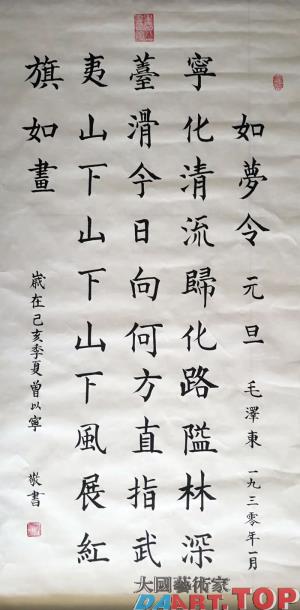 如夢令 元旦 毛澤東 一九三零年一月
寧化清流歸化路隘林深
薹滑今日向何方直指武
夷山下山下山下風展紅
旗如畫
歲在己亥季夏曾以寧 敬書
大國藝術家
DAART.TOP